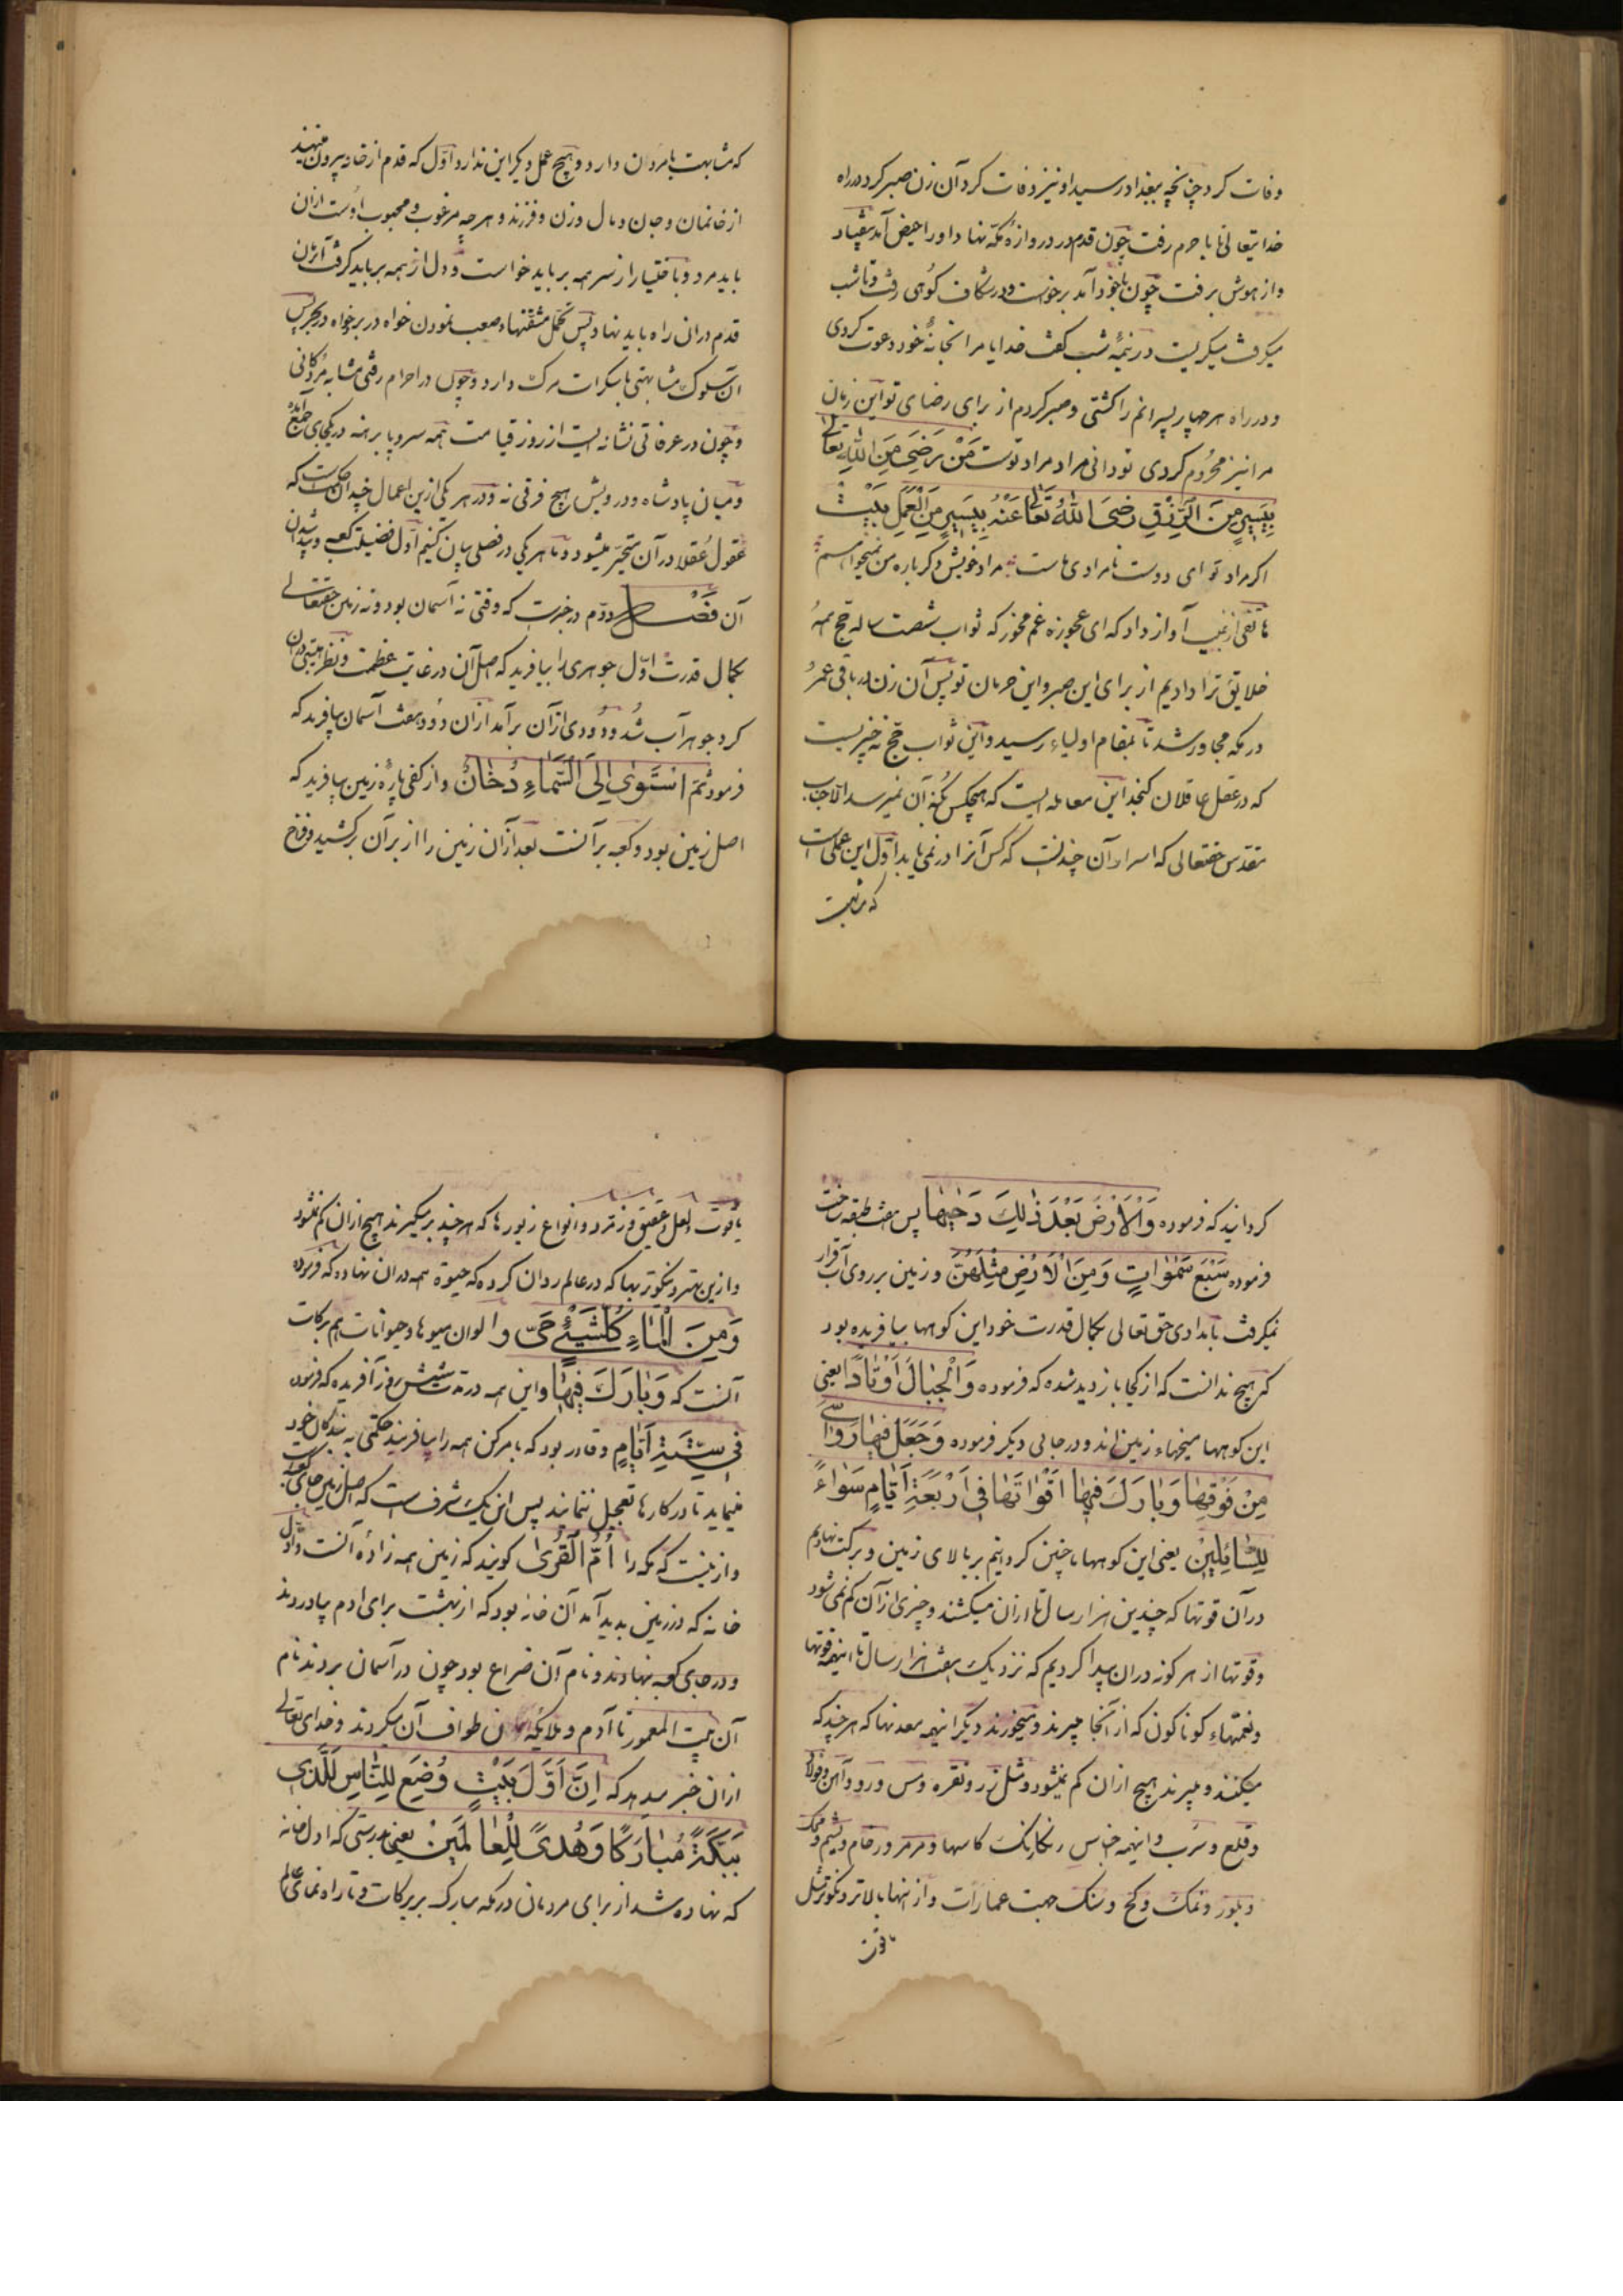 وفات کرد چنانچه ببغداد رسید او نیز وفات کرد آن زن صبر کرد در راه
خدایتعالی با حرم رفت چون قدم در دروازه مکه نهاد او را حیض آمد بیفتاد
و از هوش برفت چون باخود آمد برخواست و در شکاف کوهی رفت و تا شب
میکرفت میکریست در نیمه شب کفت خدایا مرا بخانه خود دعوت کردی
و در راه هر چهار پسرانم را کشتی و صبر کردم از برای رضای تو این زمان
مرا نیز محروم کردی تو دانی مراد مراد توست مَنْ رَضِیَ مِنَ اللهِ تعالی
بِیَسِیرٍ مِنَ الرِّزْقِ رَضِیَ اللهُ تَعَالَی عَنْهُ بِیَسِیرٍ مِنَ الْعَمَلِ بَیْت
اکر مراد تو ای دوست نامرادی ماست مراد خویش دکر باره من نمیخواهم
هاتفی از غیب آواز داد که ای عجوزه غم مخور که ثواب شصت ساله حج همه
خلایق ترا دادیم از برای این صبر و این حرمان تو پس آن زن در باقی عمر
در مکه مجاور شد تا بمقام اولیاء رسید و این ثواب حج نه چیزیست
که در عقل عاقلان کنجد این معامله ایست که هیچکس بکنه آن نمیرسد الا جناب
مقدس حقتعالی که اسرار آن چندانست که کس آنرا در نمی یابد اول این عملی است
که مشابهت
که مشابهت بامردان دارد و هیچ عمل دیکر این ندارد اول که قدم از خانه بیرون مینهند
از خانمان و جان و مال و زن و فرزند و هر چه مرغوب و محبوب اوست ازان
باید مرد و باختیار از سر همه برباید خواست و دل از همه برباید کرفت آنزمان
قدم دران راه باید نهاد پس تحمل مشقتهاء صعب نمودن خواه در بر خواه در بحر پس
این سلوک مشابهتی باسکرات مرک دارد و چون در احرام رفتی مشابه مردکانی
و چون در عرفاتی نشانه ایست از روز قیامت همه سر و پا برهنه در یکجای جمع آمده
و میان پادشاه و درویش هیچ فرقی نه و در هر یکی ازین اعمال چندان حکمت است که
عقول عقلا در آن متحیر میشود و ما هر یکی در فصلی بیان کنیم اول فضیلت کعبه و پیدا شدن
آن فَصْل دوم در خبرست که وقتی نه آسمان بود و نه زمین حقتعالی
بکمال قدرت اول جوهری را بیافرید که اصل آن در غایت عظمت و نظر هیبتی بران
کرد جوهر آب شد و دودی ازآن برآمد ازان دود هفت آسمان بیافرید که
فرمود ثُمَّ اسْتَوَی اِلَی السَّمَاءِ دُخَانٌ و از کفی پاره زمین بیافرید که
اصل زمین بود و کعبه بر آنست بعد ازان زمین را از بر آن برکشید و فراخ
کردانید که فرموده وَالْاَرْضَ بَعْدَ ذٰلِکَ دَحٰیهَا پس هفت طبقه ساخت
فرموده سَبْعَ سَمٰوَاتٍ وَمِنَ الْاَرْضِ مِثْلَهُنَّ و زمین بر روی آب قرار
نمیکرفت بامدادی حق تعالی بکمال قدرت خود این کوهها بیافریده بود
که هیچ ندانست که از کجا باز دید شده که فرموده وَالْجِبَالَ اَوْتَادًا یعنی
این کوهها میخهاء زمین اند و در جائی دیکر فرموده وَجَعَلَ فِیهَا رَوَاسِیَ
مِنْ فَوْقِهَا وَبَارَکَ فِیهَا اَقْوَاتَهَا فِی اَرْبَعَةِ اَیَّامٍ سَوَاءً
لِلسَّائِلِینَ یعنی این کوهها ما چنین کردانیم بر بالای زمین و برکت نهادیم
در آن قوتها که چندین هزار سال تا ازان میکشند و چیزی ازآن کم نمی شود
و قوتها از هر کونه دران پیدا کردیم که نزدیک هفت هزار سال تا اینهمه قوتها
و نعمتهاء کوناکون که از آنجا میبرند و میخورند دیکر اینهمه معدنها که هر چند که
میکنند و میبرند هیچ ازان کم نمیشود و مثل زر و نقره و مس و روو وآهن و فولاد
و قلع و سرب و اینهمه اجناس رنکارنک کاسها و مرمر و رخام و یشم و محک
و بلور و نمک و کچ و سنک جهت عمارات و از اینها بالاتر و نکوتر مثل
یاقوت
یاقوت و لعل و عقیق و زمرد و انواع زیورها که هر چند برمیکیرند هیچ ازان کم نشود
و ازین بهتر و نیکوتر بهاکه در عالم روان کرده که حیوة همه دران نهاده که فرموده
وَمِنَ الْمَاءِ کُلَّ شَیْءٍ حَیّ و الوان میوها و حیوانات هم برکات
آنست که وَبَارَکَ فِیهَا و این همه در مدت شش روز آفریده که فرمود
فِی سِتَّةِ اَیَّامٍ و قادر بود که بامر کن همه را بیافریند حکمتی به بندکان خود
مینماید تا در کارها تعجیل ننمایند پس این یک شرفست که اصل زمین جای کعبه است
و ازینست که مکه را اُمُّ الْقُرَی کویند که زمین همه زاده آنست و اول
خانه که در زمین بدید آمد آن خانه بود که از بهشت برای ادم بیاوردند
و در جای کعبه بنهادند و نام آن ضراع بود چون در آسمان بردند نام
آن بیت المعمور تا آدم و ملایکه آسمان طواف آن میکردند و خدای تعالی
ازان خبر میدهد که اِنَّ اَوَّلَ بَیْتٍ وُضِعَ لِلنَّاسِ لَلَّذِی
بِبَکَّةَ مُبَارَکًا وَهُدًی لِلْعَالَمِینَ یعنی بدرستی که اول خانه
که نهاده شد از برای مردمان در مکه مبارک بر برکات و تا راه نمای عالم